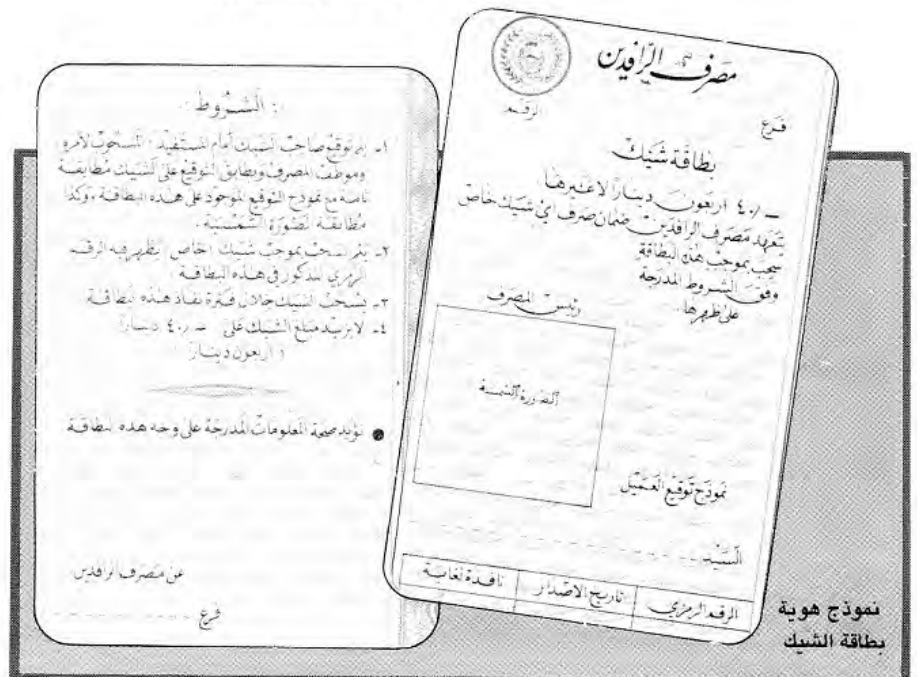 مصرف الرافدين
الرقم
فرع
بطاقة شيك
-/٤٠ اربعون ديناراً لا غيرها
يتعهد مصرف الرافدين ضمان صرف اي شيك خاص
سحب بموجب هذه البطاقة
وفق الشروط المدرجة
على ظهرها.
رئيس المصرف
الصورة الشمسية
نموذج توقيع العميل
السيد
الرقم الرمزي تاريخ الاصدار نافذة لغاية
: الشروط :
١- يتم توقيع صاحب الشيك أمام المستفيد (المسحوب لأمره)
وموظف المصرف ويطابق التوقيع على الشيك مطابقة
تامة مع نموذج التوقيع الموجود على هذه البطاقة، وكذا
مطابقة الصورة الشمسية.
٢- يتم السحب بموجب شيك (خاص) يظهر فيه الرقم
الرمزي المذكور في هذه البطاقة
٣- يسحب الشيك خلال فترة نفاذ هذه البطاقة
٤- لا يزيد مبلغ الشيك على -/٤٠ ديناراً
(اربعون دينار)
● نؤيد صحة المعلومات المدرجة على وجه هذه البطاقة
عن مصرف الرافدين
فرع
نموذج هوية
بطاقة الشيك